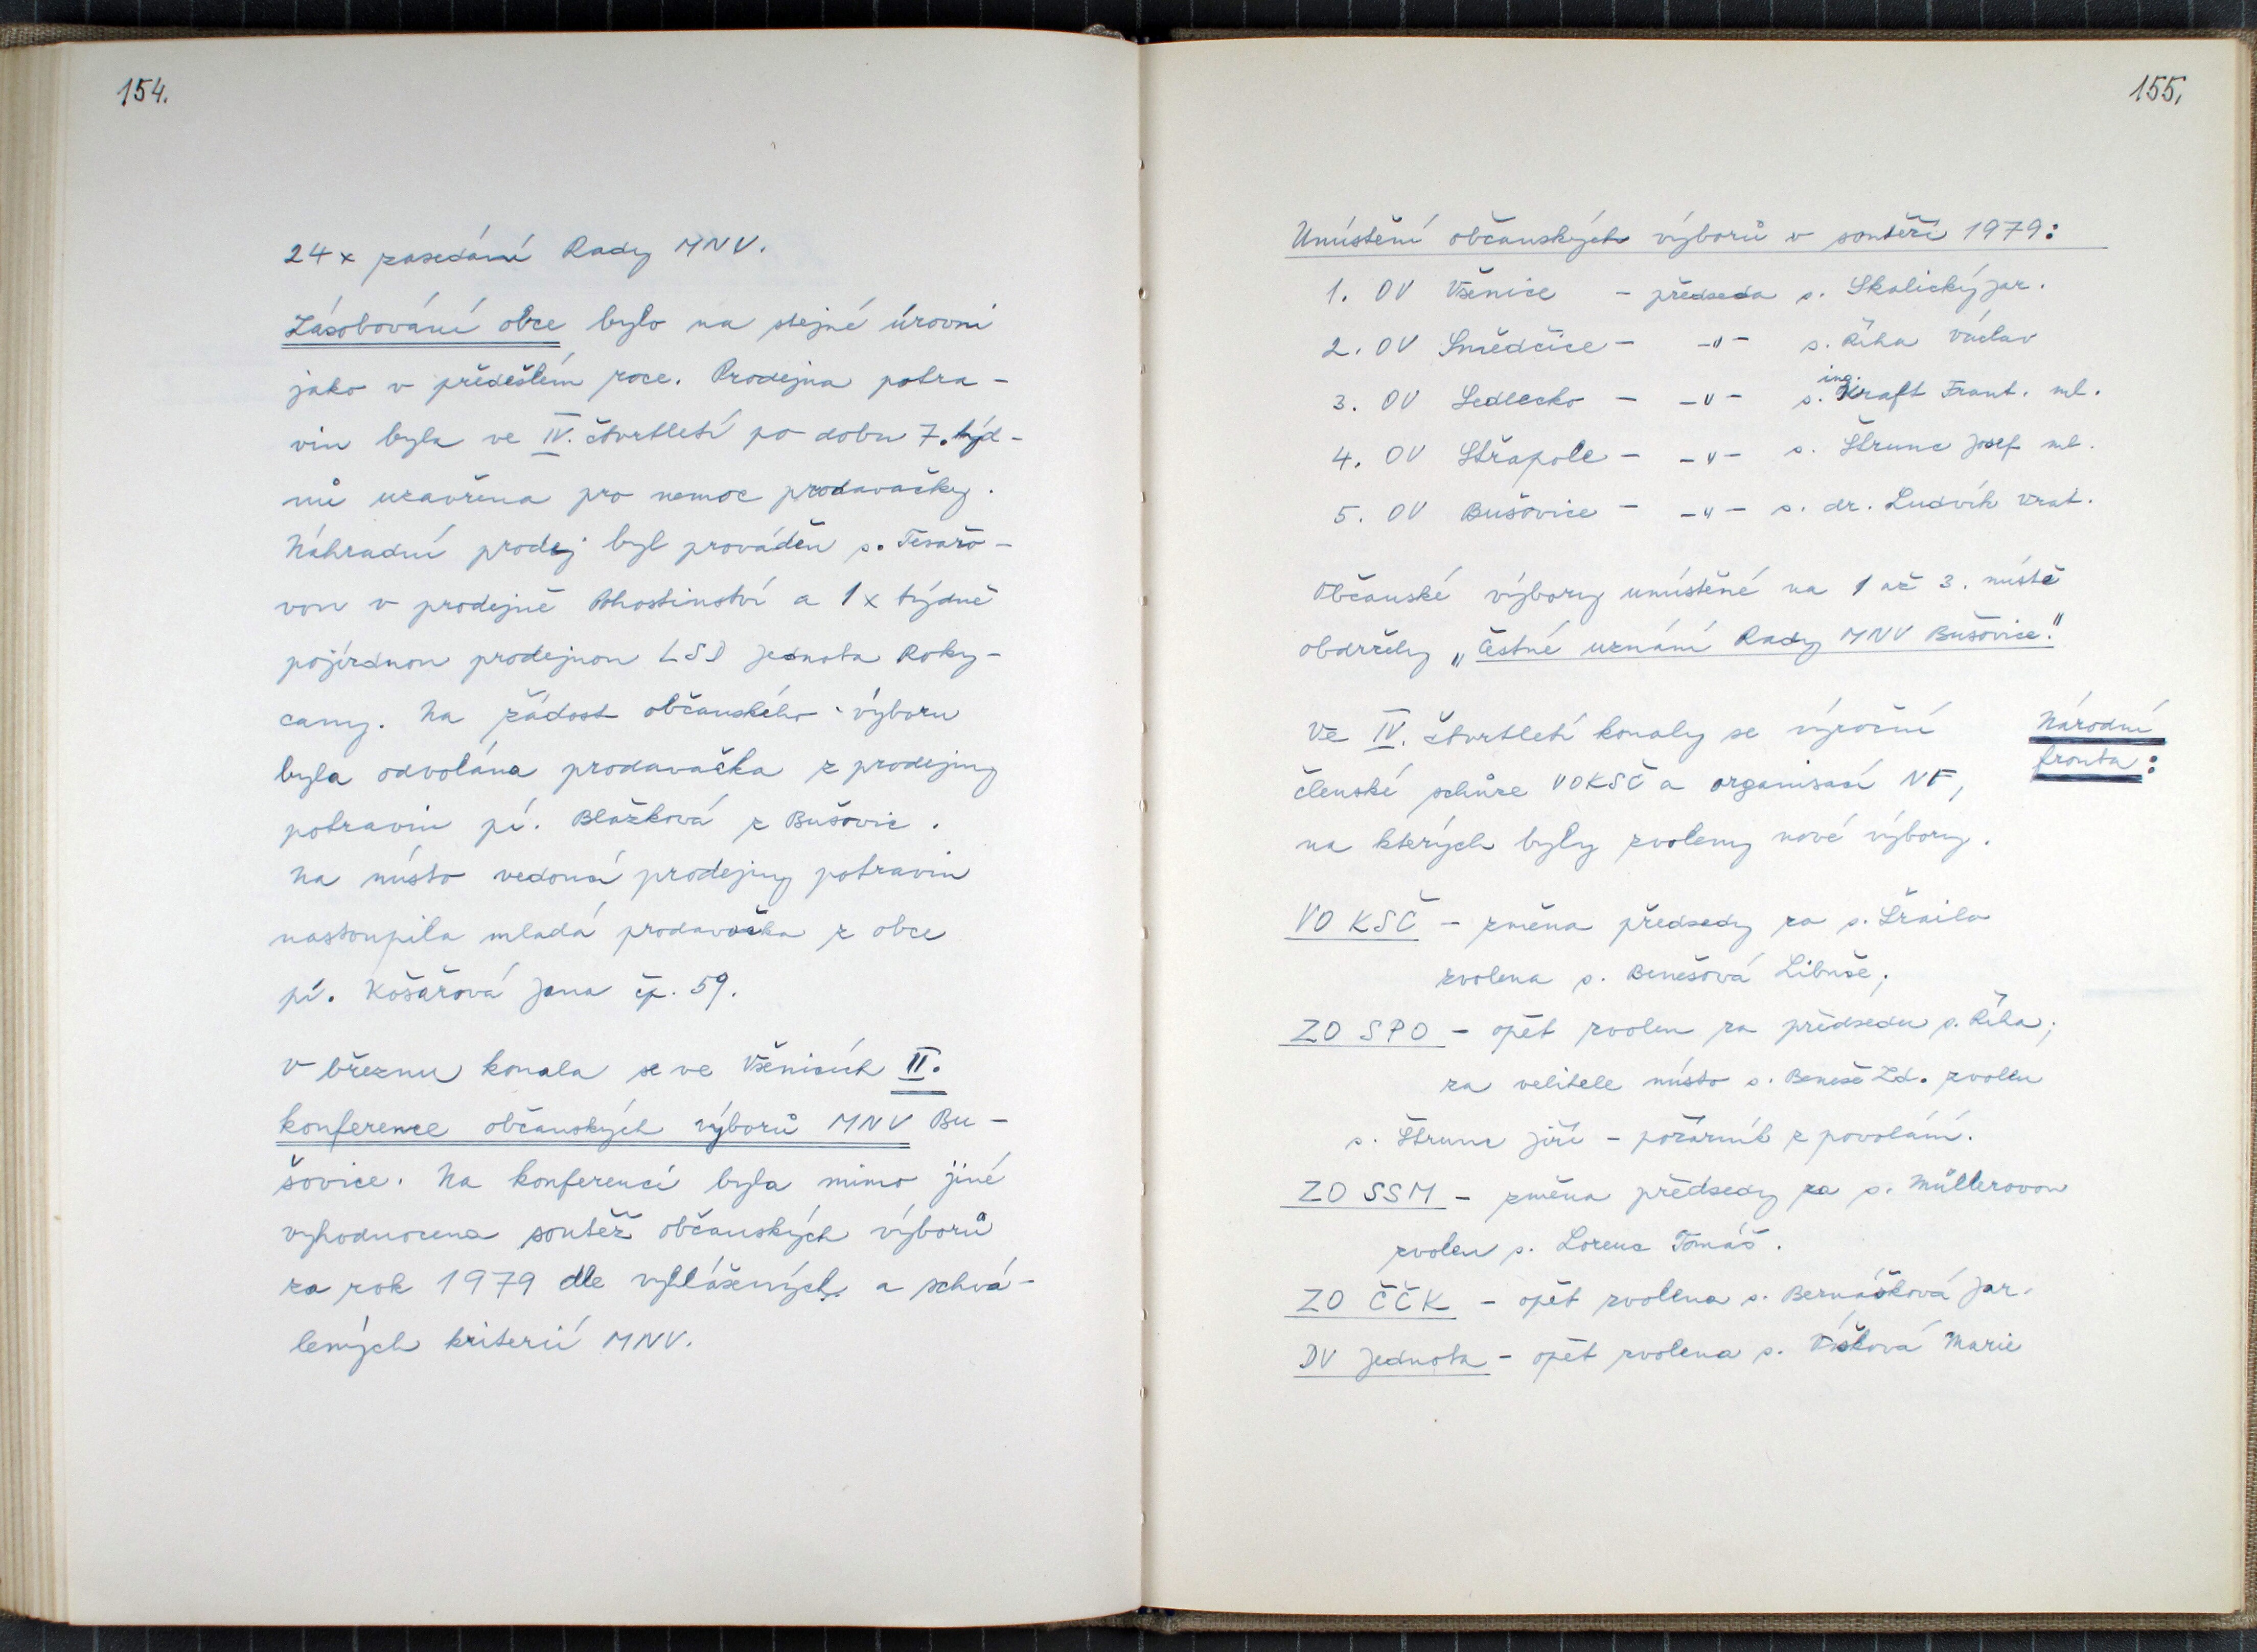 154.
24x zasedání Rady MNV.
Zásobování obce bylo na stejné úrovni
jako v předešlém roce. Prodejna potra-
vin byla ve IV. čtvrtletí po dobu 7. týd-
nů uzavřena pro nemoc prodavačky.
Náhradní prodej byl prováděn s. Tesařo-
vou v prodejně Pohostinství a 1x týdně
pojízdnou prodejnou LSD Jednota Roky-
cany. Na žádost občanského výboru
byla odvolána prodavačka z prodejny
potravin pí. Blažková z Bušovic.
Na místo vedoucí prodejny potravin
nastoupila mladá prodavačka z obce
pí. Košařová Jana čp. 59.
V březnu konala se ve Všenicích II.
konference občanských výborů MNV Bu-
šovice. Na konferenci byla mimo jiné
vyhodnocena soutěž občanských výborů
za rok 1979 dle vyhlášených a schvá-
lených kriterií MNV.
155.
Umístění občanských výborů v soutěži 1979:
1. OV Všenice - předseda s. Skalický Jar.
2. OV Smědčice - -"- s. Říha Václav
3. OV Sedlecko - -"- s. ing. Kraft Frant. ml.
4. OV Střapole - -"- s. Štrunc Josef ml.
5. OV Bušovice - -"- s. dr. Ludvík Vrat.
Občanské výbory umístěné na 1 až 3. místě
obdržely „Čestné uznání Rady MNV Bušovice."
Národní
fronta:
Ve IV. čtvrtletí konaly se výroční
členské schůze VOKSČ a organisací NF,
na kterých byly zvoleny nové výbory.
VO KSČ - změna předsedy za s. Šnaila
zvolena s. Benešová Libuše;
ZO SPO - opět zvolen za předsedu s. Říha;
za velitele místo s. Beneše Zd. zvolen
s. Štrunc Jiří - požárník z povolání.
ZO SSM - změna předsedy za s. Müllerovou
zvolen s. Lorenc Tomáš.
ZO ČČK - opět zvolena s. Bernášková Jar.
DV Jednota - opět zvolena s. Marie